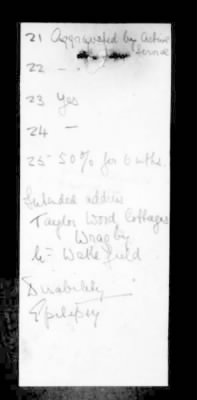 21 Aggravated by Active
Service
22 - .
23 Yes
24 -
25 - 50% for 6 mths.
Intended address
Taylor Wood Cottages
Wragby
Nr Wakefield
Disability
Epilepsy